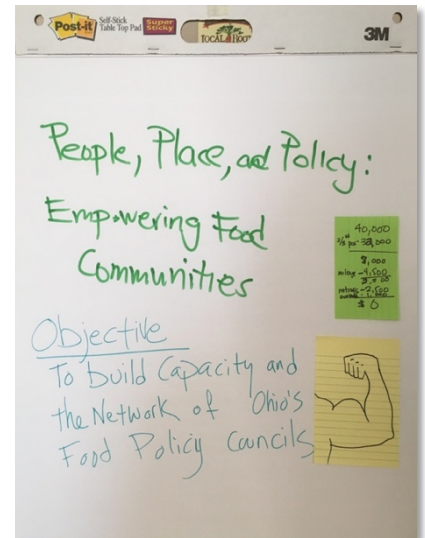 Post-it Self-Stick Table Top Pad Super Sticky LOCAL ROOTS 3M
People, Place, and Policy:
Empowering Food
Communities
40,000
32,000
8,000
$ 0
Objective
To build Capacity and
the Network of Ohio's
Food Policy Councils